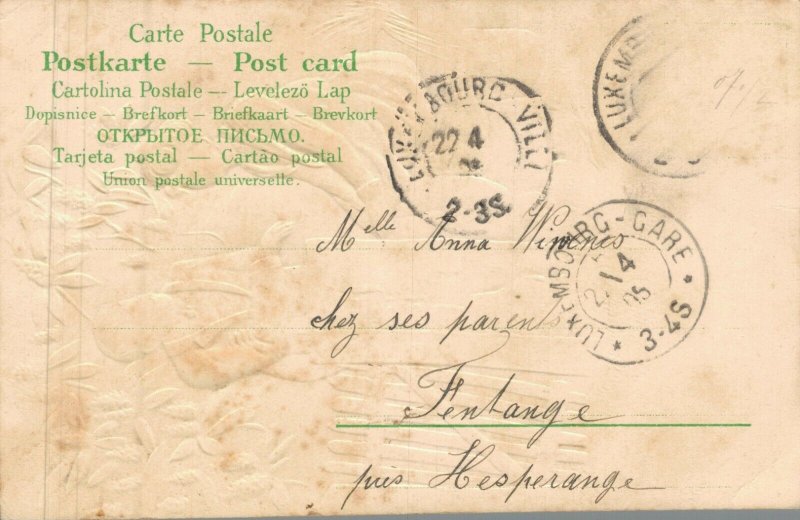 Carte Postale
Postkarte — Post card
Cartolina Postale — Levelezö Lap
Dopisnice — Brefkort — Briefkaart — Brevkort
ОТКРЫТОЕ ПИСЬМО.
Tarjeta postal — Cartão postal
Union postale universelle.
LUXEMBOURG-VILLE
22 4
2-3S
LUXEMB
LUXEMBOURG-GARE
2/4
05
3-4S
Melle Anna
chez ses parents
Fentange
près Hesperange